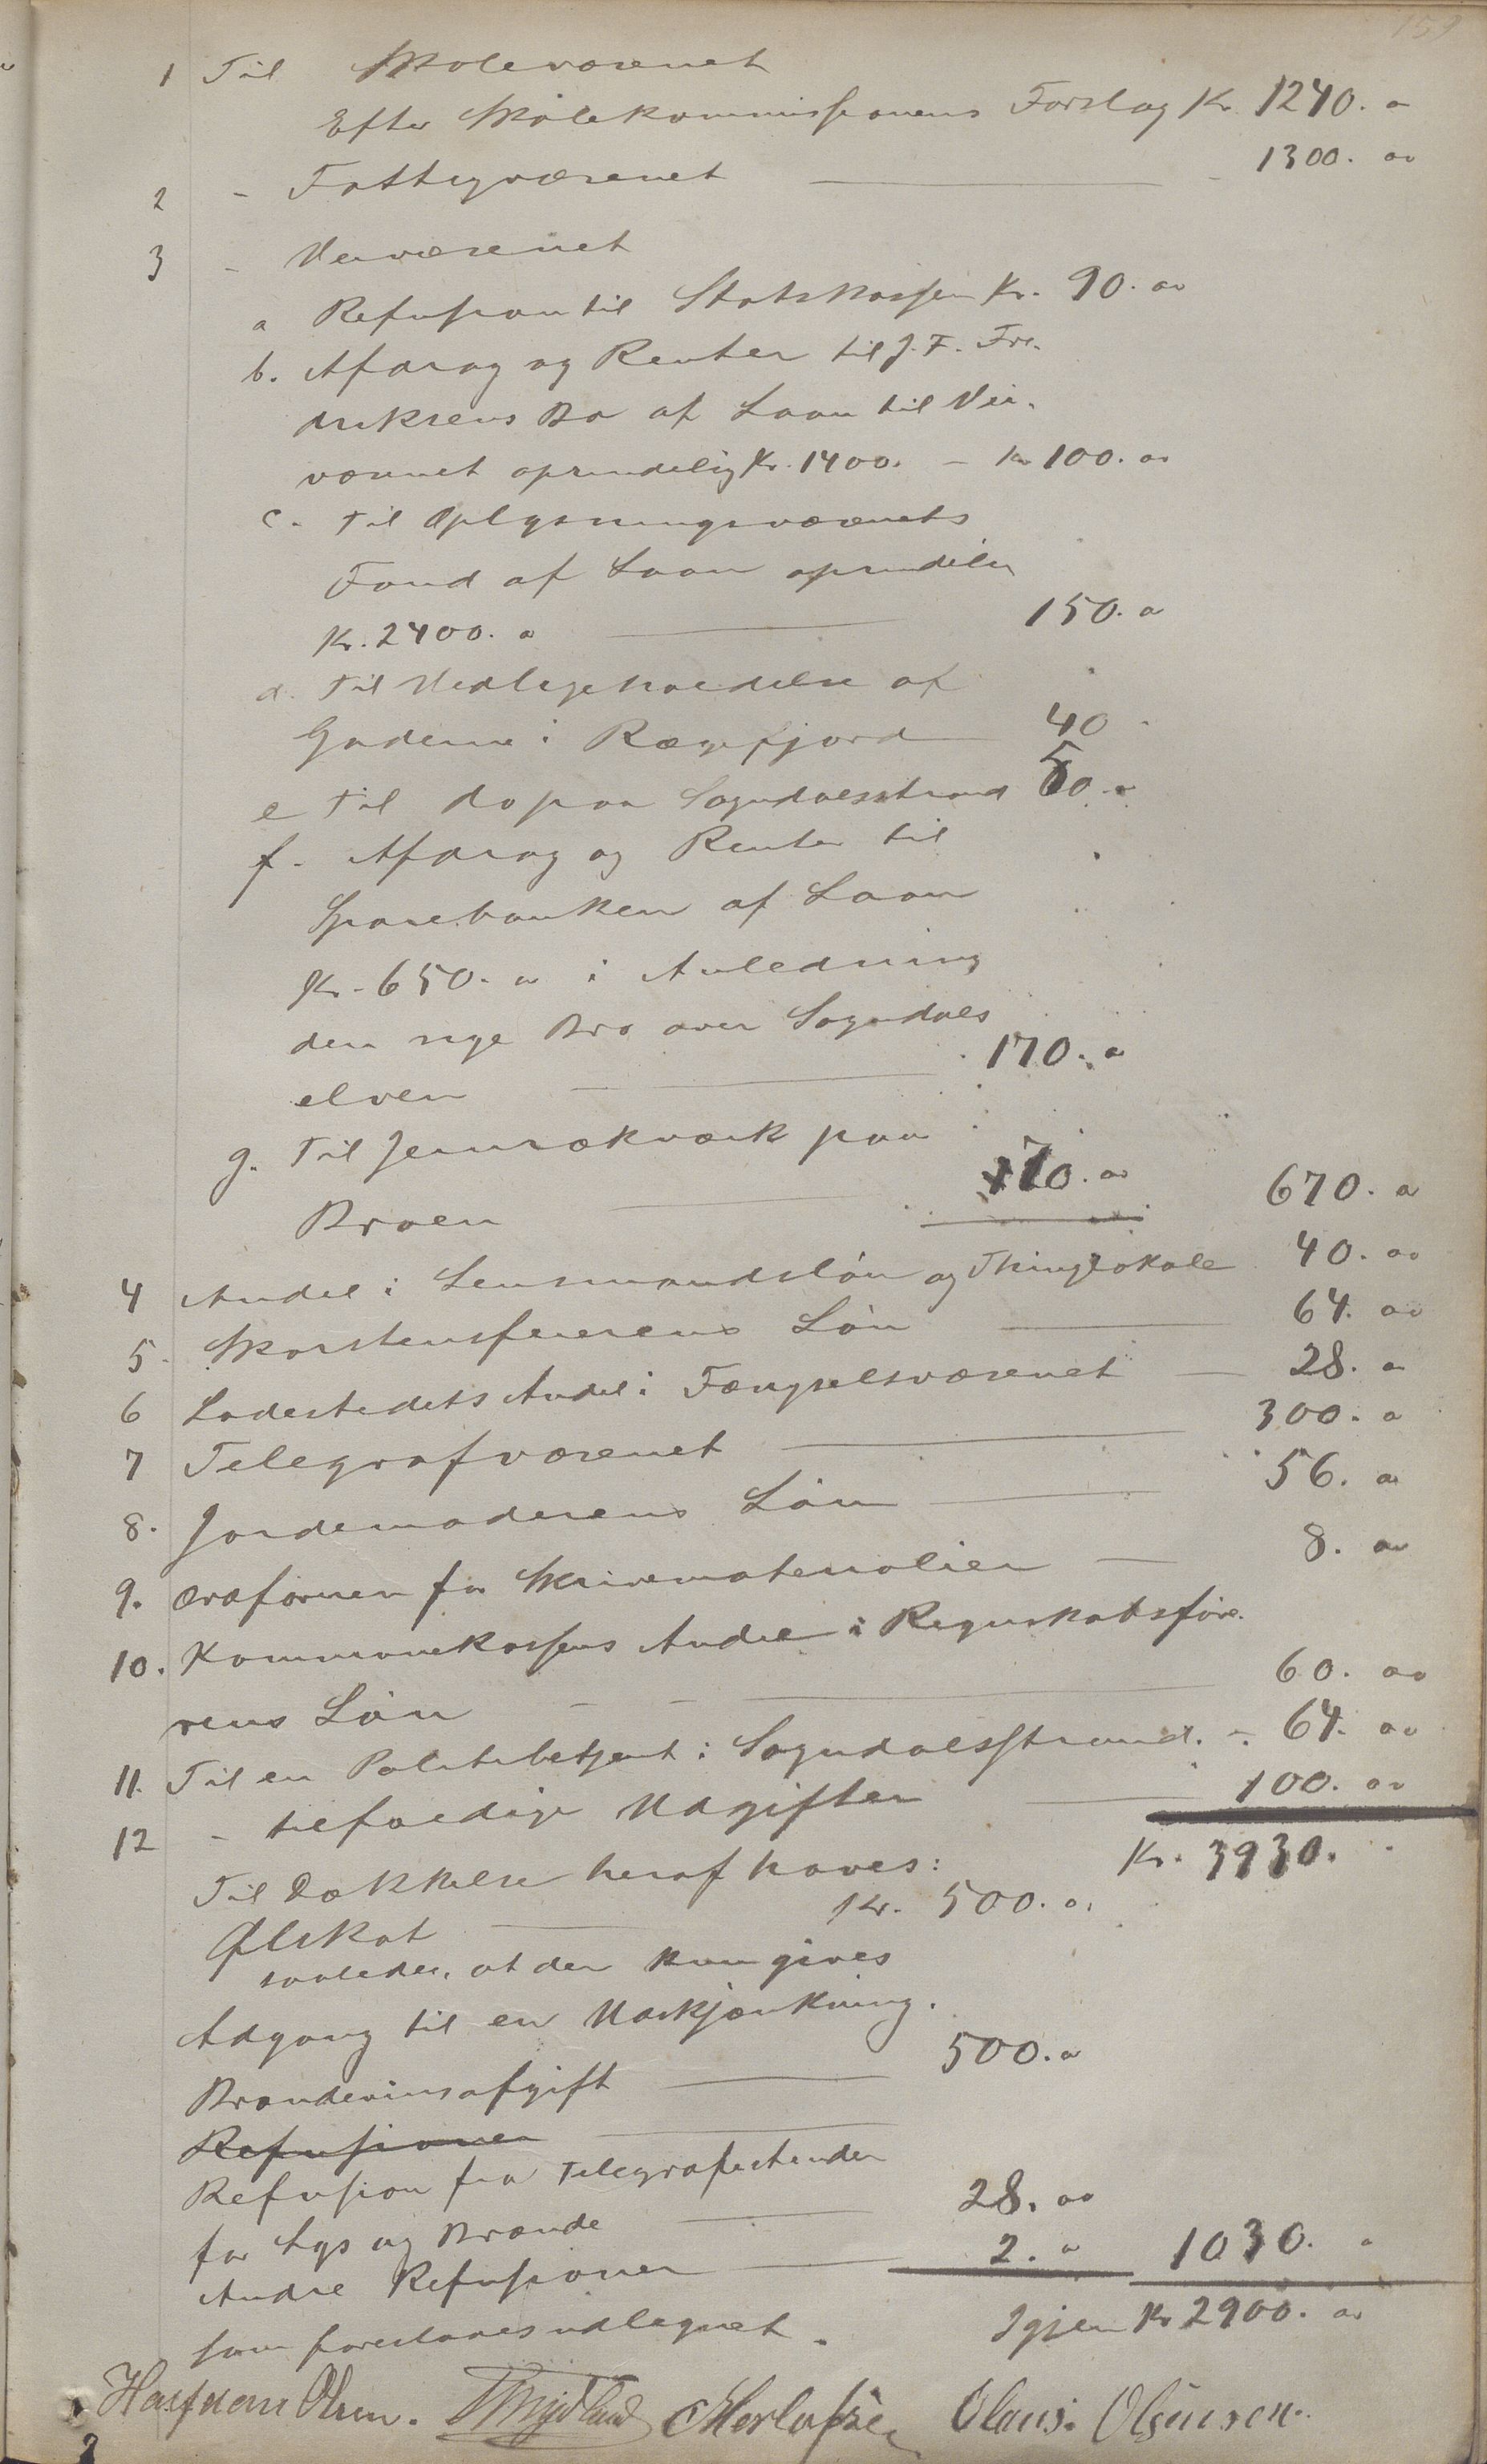 159
1 Til Skolevæsenet
Efter Skolekommissionens Forslag Kr. 1240. 00
2 - Fattigvæsenet - 1300. 00
3 - Veivæsenet
a Refusion til Statskassen Kr. 90. 00
b. Afdrag og Renter til J. F. Fre-
driksens Bo af Laan til Vei-
væsenet oprindelig Kr. 1400. - Kr 100. 00
c. Til Oplysningsvæsenets
Fond af Laan oprindelig
Kr. 2400. 00 150. 00
d. Til Vedligeholdelse af
Gaderne i Rægefjord 40
e Til do paa Sogndalsstrand 50. 00
f. Afdrag og Renter til
Sparebanken af Laan
Kr. 650. 00 i Anledning
den nye Bro over Sogndals
elven 170. 00
g. Til Jernrækværk paa
Broen 70. 00 670. 00
4 Andel i Lensmandsløn og Thinglokale 40. 00
5 Skorstensfeierens Løn 64. 00
6 Ladestedets Andel i Fængselsvæsenet - 28. 00
7 Telegrafvæsenet 300. 00
8. Jordemoderens Løn 56. 00
9. Ordføreren for Skrivematerialier - 8. 00
10. Kommunekassens Andel i Regnskabsføre-
rens Løn - - 60. 00
11. Til en Politibetjent i Sogndalsstrand. - 64. 00
12 - tilfældige Udgifter 100. 00
Kr. 3930.
Til Dækkelse heraf haves:
Ølskat Kr. 500. 00
saaledes, at der kun gives
Adgang til en Udskjænkning.
Brændevinsafgift 500. 00
Refusioner
Refusion fra Telegrafistinden
for Lys og Brænde 28. 00
Andre Refusioner 2. 00 1030.
Igjen Kr 2900. 00
som foreslaaes udlignet.
Halfdan Olsen. Olaus. Olsensen.